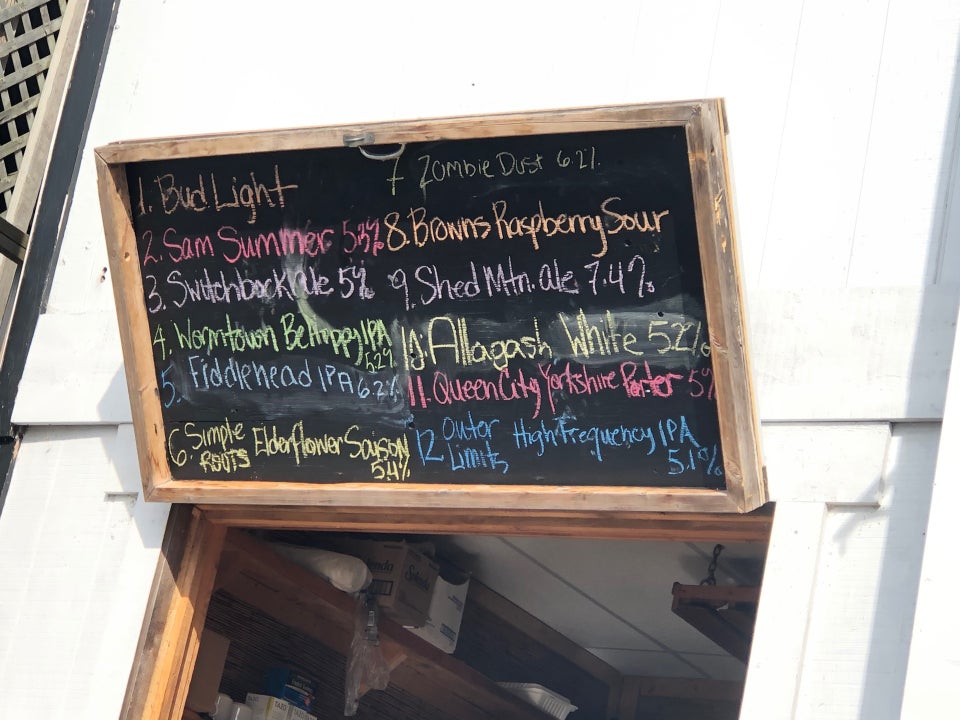 1. Bud Light
2. Sam Summer 5.3%
3. Switchback Ale 5%
4. Wormtown Be Hoppy IPA
5.2%
5. Fiddlehead IPA 6.2%
6. Simple
Roots
Elderflower Saison
5.4%
7 Zombie Dust 6.2%
8. Browns Raspberry Sour
9. Shed Mtn. ale 7.4%
10. Allagash White 5.2%
11. Queen City Yorkshire Porter 5%
12 Outer
Limits
High Frequency IPA
5.1%